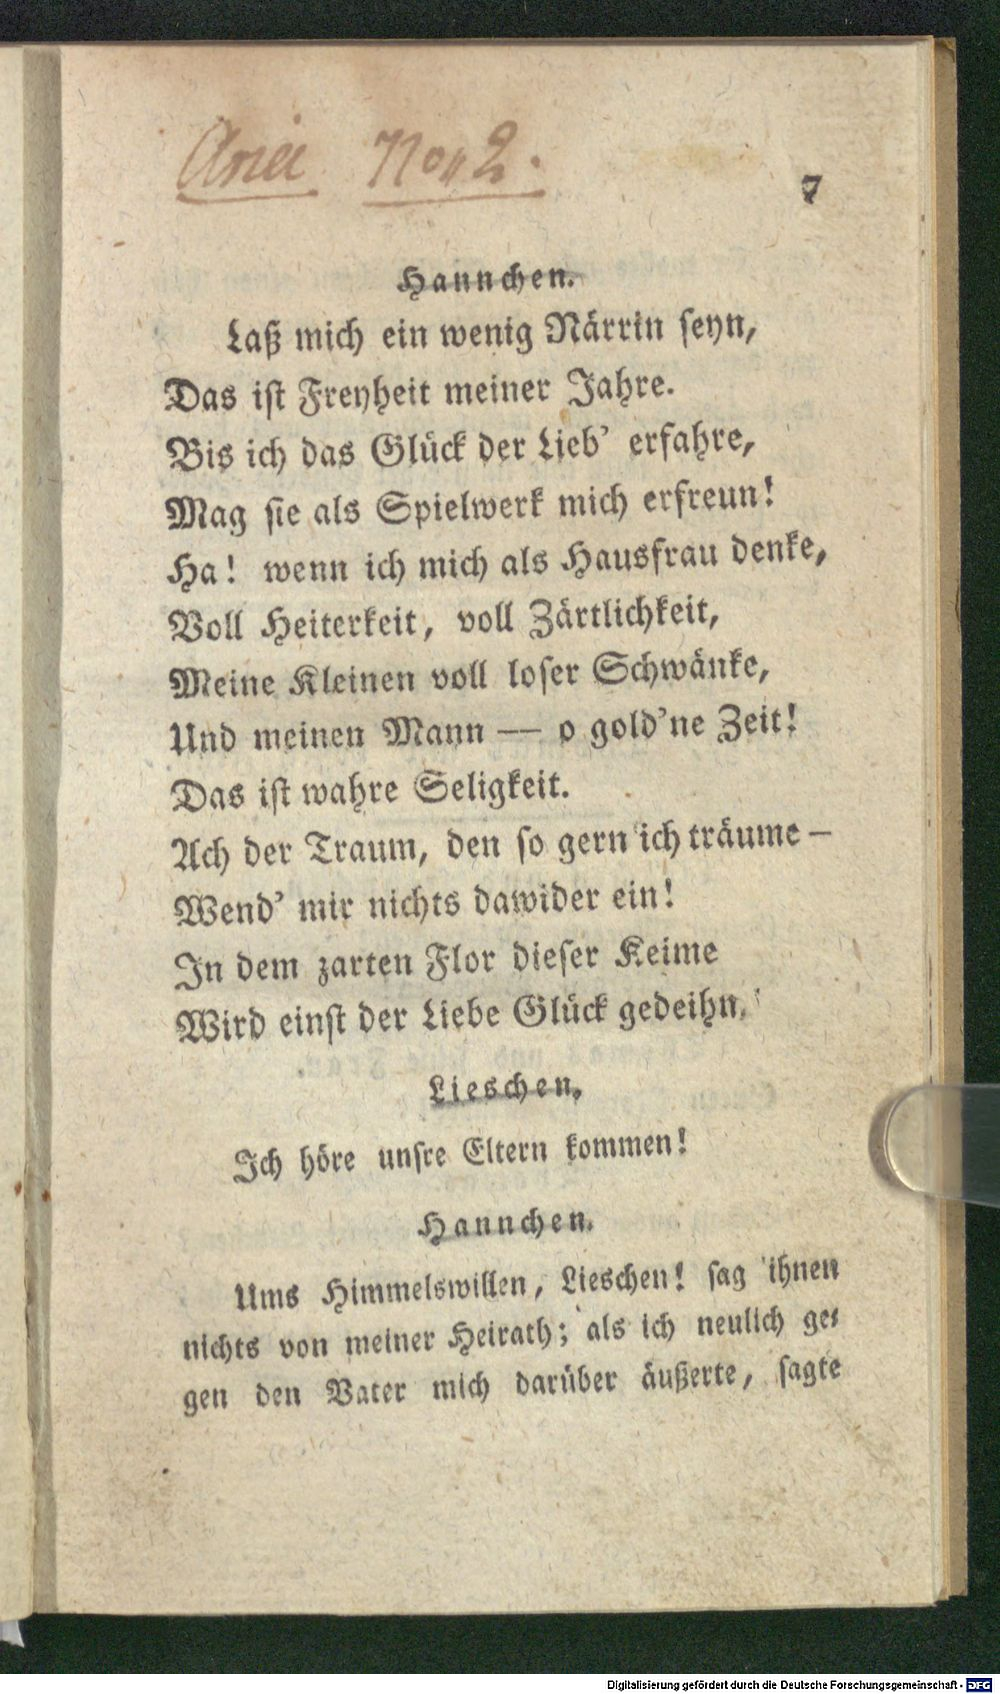 Aria No 2.
7
Hannchen.
Laß mich ein wenig Närrin seyn,
Das ist Freyheit meiner Jahre.
Bis ich das Glück der Lieb' erfahre,
Mag sie als Spielwerk mich erfreun!
Ha! wenn ich mich als Hausfrau denke,
Voll Heiterkeit, voll Zärtlichkeit,
Meine Kleinen voll loser Schwänke,
Und meinen Mann — o gold'ne Zeit!
Das ist wahre Seligkeit.
Ach der Traum, den so gern ich träume —
Wend' mir nichts dawider ein!
In dem zarten Flor dieser Keime
Wird einst der Liebe Glück gedeihn.
Lieschen.
Ich höre unsre Eltern kommen!
Hannchen.
Ums Himmelswillen, Lieschen! sag ihnen
nichts von meiner Heirath; als ich neulich ge-
gen den Vater mich darüber äußerte, sagte
Digitalisierung gefördert durch die Deutsche Forschungsgemeinschaft - DFG